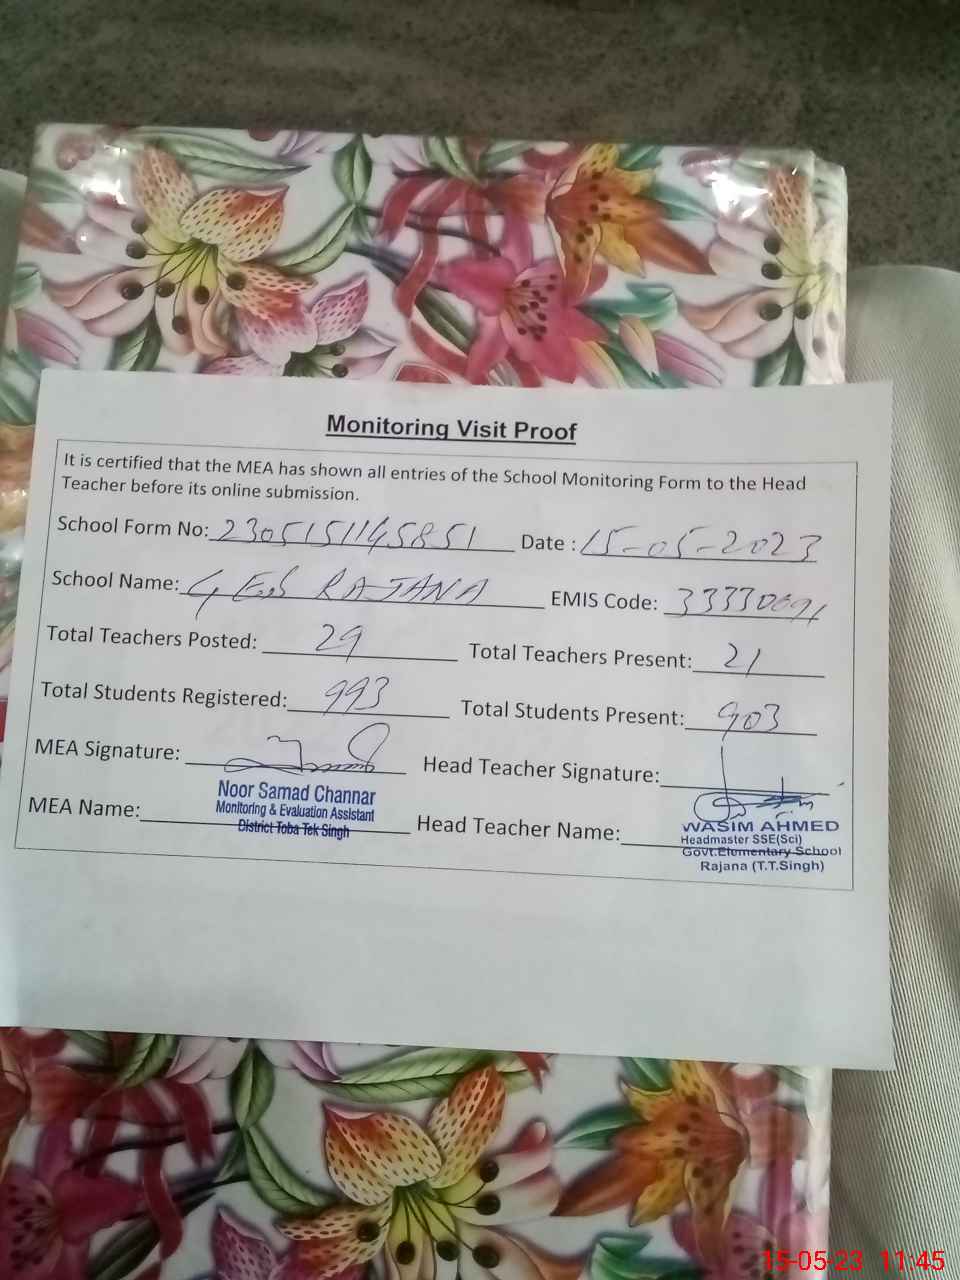 Monitoring Visit Proof
It is certified that the MEA has shown all entries of the School Monitoring Form to the Head
Teacher before its online submission.
School Form No: 2305151145851 Date : 15-05-2023
School Name: GES RAJANA EMIS Code: 33330091
Total Teachers Posted: 29 Total Teachers Present: 21
Total Students Registered: 993 Total Students Present: 903
MEA Signature: Head Teacher Signature:
MEA Name: Head Teacher Name:
Noor Samad Channar
Monitoring & Evaluation Assistant
District Toba Tek Singh
WASIM AHMED
Headmaster SSE(Sci)
Govt.Elementary School
Rajana (T.T.Singh)
15-05-23 11:45